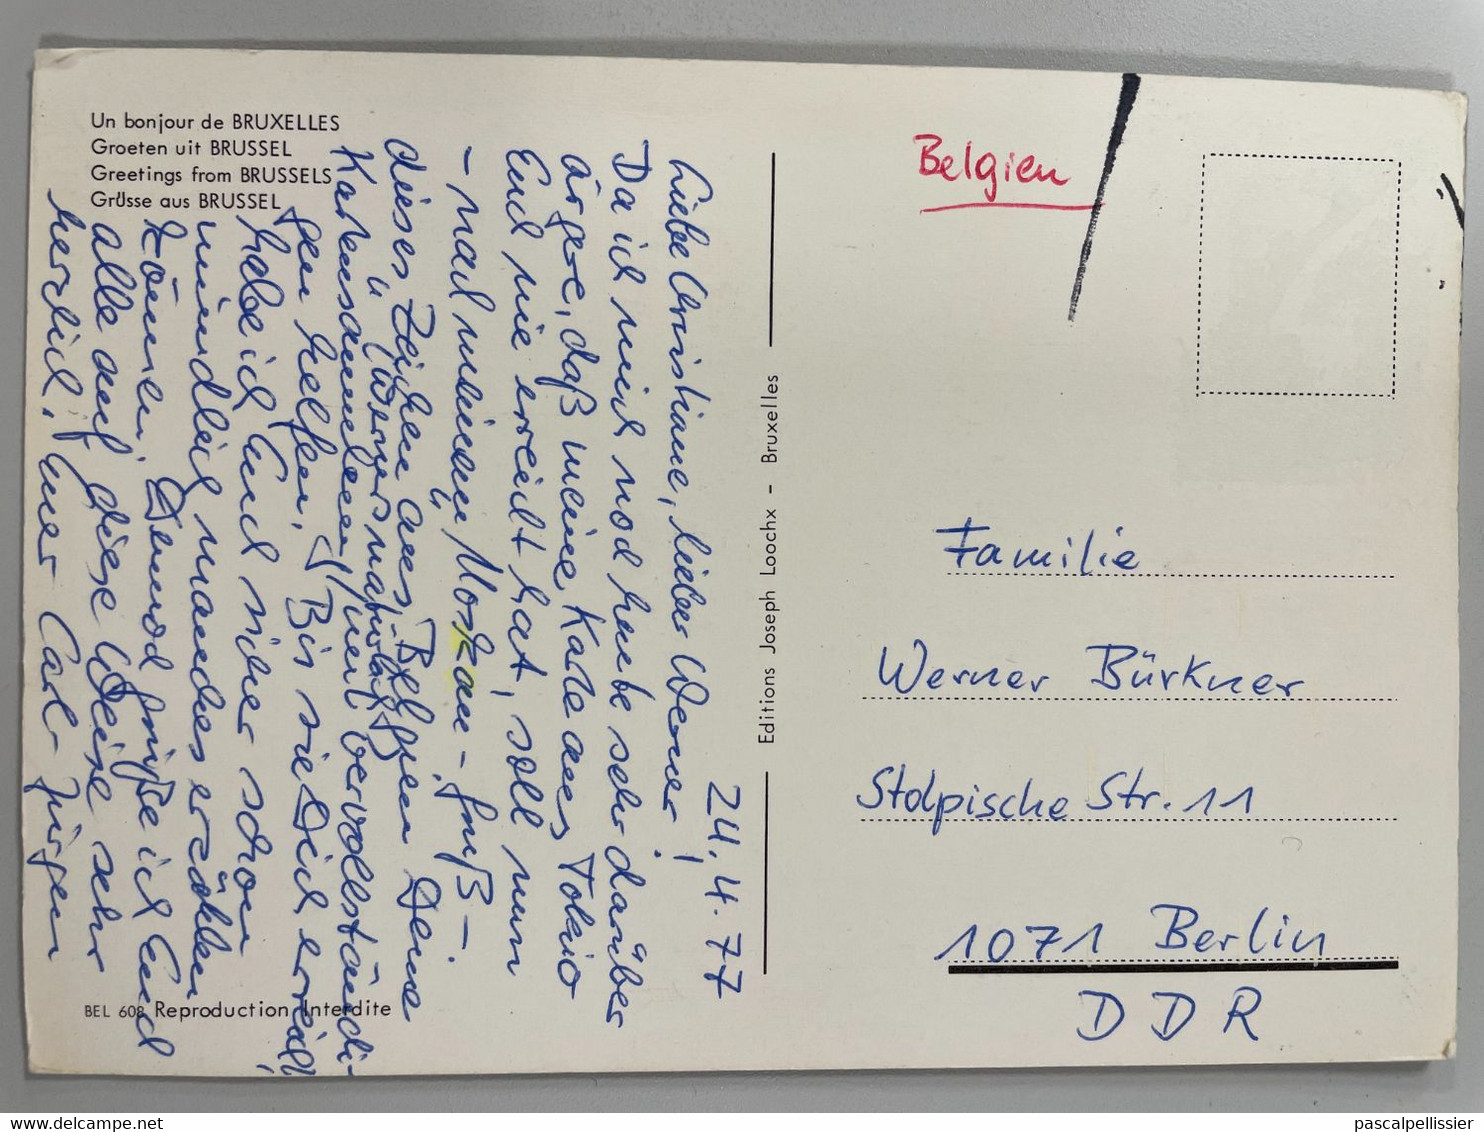 Un bonjour de BRUXELLES
Groeten uit BRUSSEL
Greetings from BRUSSELS
Grüsse aus BRUSSEL
24.4.77
Liebe Christiane, lieber Werner!
Da ich mich noch heute sehr darüber
ärgere, daß meine Karte aus Tokio
Euch nie erreicht hat, soll nun
- nach meinem Moskau-Gruß -
dieses Zeichen aus Belgien Deine
"Kartensammlung" mit vervollständi-
(Werners natürlich)
gen helfen. Bis sie Dich erreicht,
habe ich Euch sicher schon
mündlich manches erzählen
können. Dennoch grüße ich Euch
alle auf diese Weise sehr
herzlich. Euer Carl-Jürgen
BEL 608 Reproduction Interdite
Editions Joseph Loochx - Bruxelles
Belgien
Familie
Werner Bürkner
Stolpische Str. 11
1071 Berlin
DDR
delcampe.net
pascalpellissier